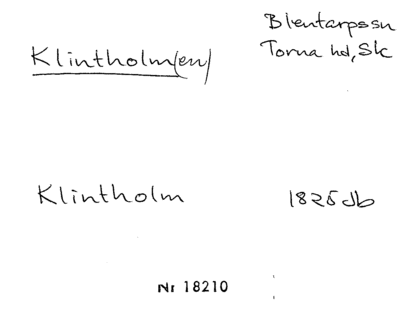 Klintholm(en)
Blentarpssn
Torna hd, Sk
Klintholm
1825 Jb
Nr 18210